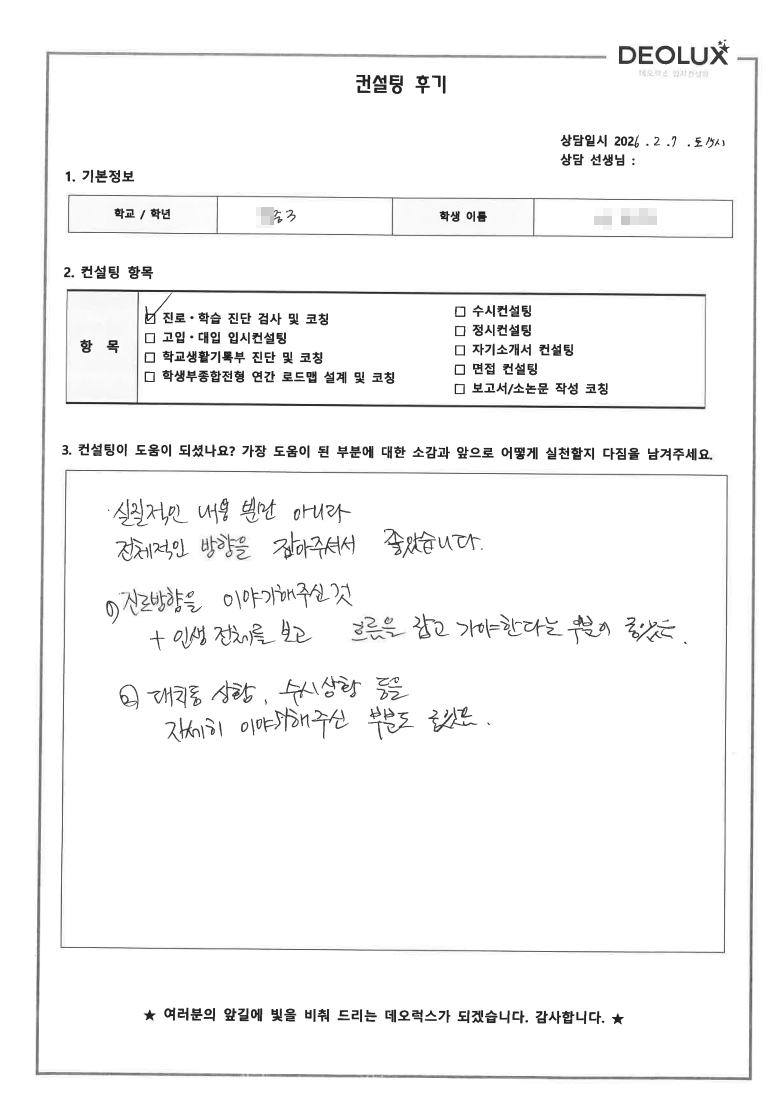 DEOLUX
데오럭스 입시컨설팅
컨설팅 후기
상담일시 2026.2.7.토 15시
상담 선생님 :
1. 기본정보
학교 / 학년 중3 학생 이름
2. 컨설팅 항목
항 목
진로·학습 진단 검사 및 코칭
고입·대입 입시컨설팅
학교생활기록부 진단 및 코칭
학생부종합전형 연간 로드맵 설계 및 코칭
수시컨설팅
정시컨설팅
자기소개서 컨설팅
면접 컨설팅
보고서/소논문 작성 코칭
3. 컨설팅이 도움이 되셨나요? 가장 도움이 된 부분에 대한 소감과 앞으로 어떻게 실천할지 다짐을 남겨주세요.
실질적인 내용 뿐만 아니라
전체적인 방향을 잡아주셔서 좋았습니다.
① 진로방향을 이야기해주신것
+ 인생 전체를 보고 흐름을 잡고 가야한다는 부분이 좋았음.
② 대치동 상황, 수시상황 등을
자세히 이야기해주신 부분도 좋았음.
★ 여러분의 앞길에 빛을 비춰 드리는 데오럭스가 되겠습니다. 감사합니다. ★